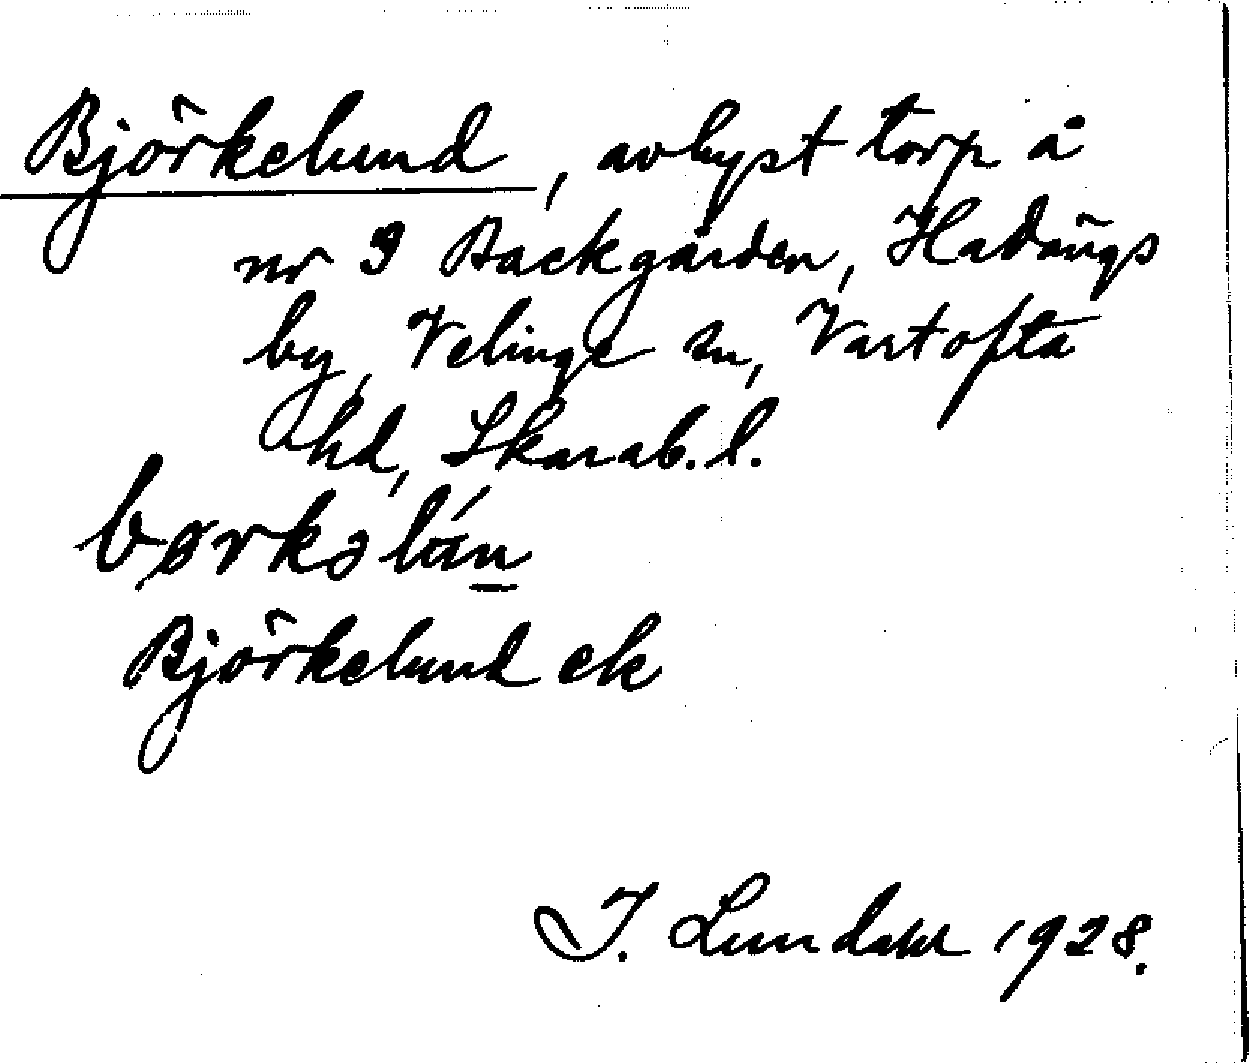 Björkelund, avhyst torp å
nr 9 Backgården, Hadängs
by, Velinge sn, Vartofta
hd, Skarab. l.
Björkelund ek
I. Lundahl 1928.